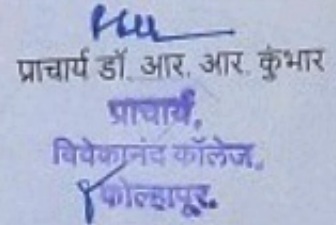 प्राचार्य डॉ. आर. आर. कुंभार
प्राचार्य,
विवेकानंद कॉलेज,
कोल्हापूर.